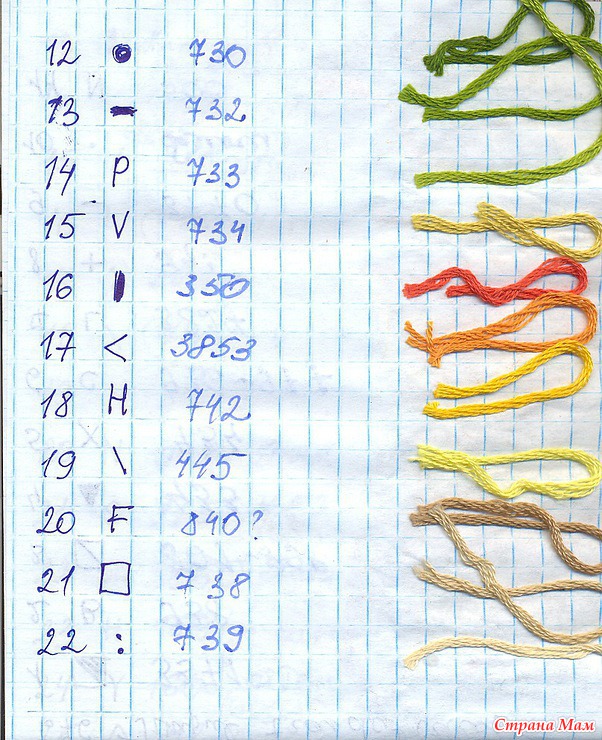 12 ● 730
13 – 732
14 P 733
15 V 734
16 ❙ 350
17 < 3853
18 H 742
19 \ 445
20 F 840?
21 □ 738
22 : 739
Страна Мам